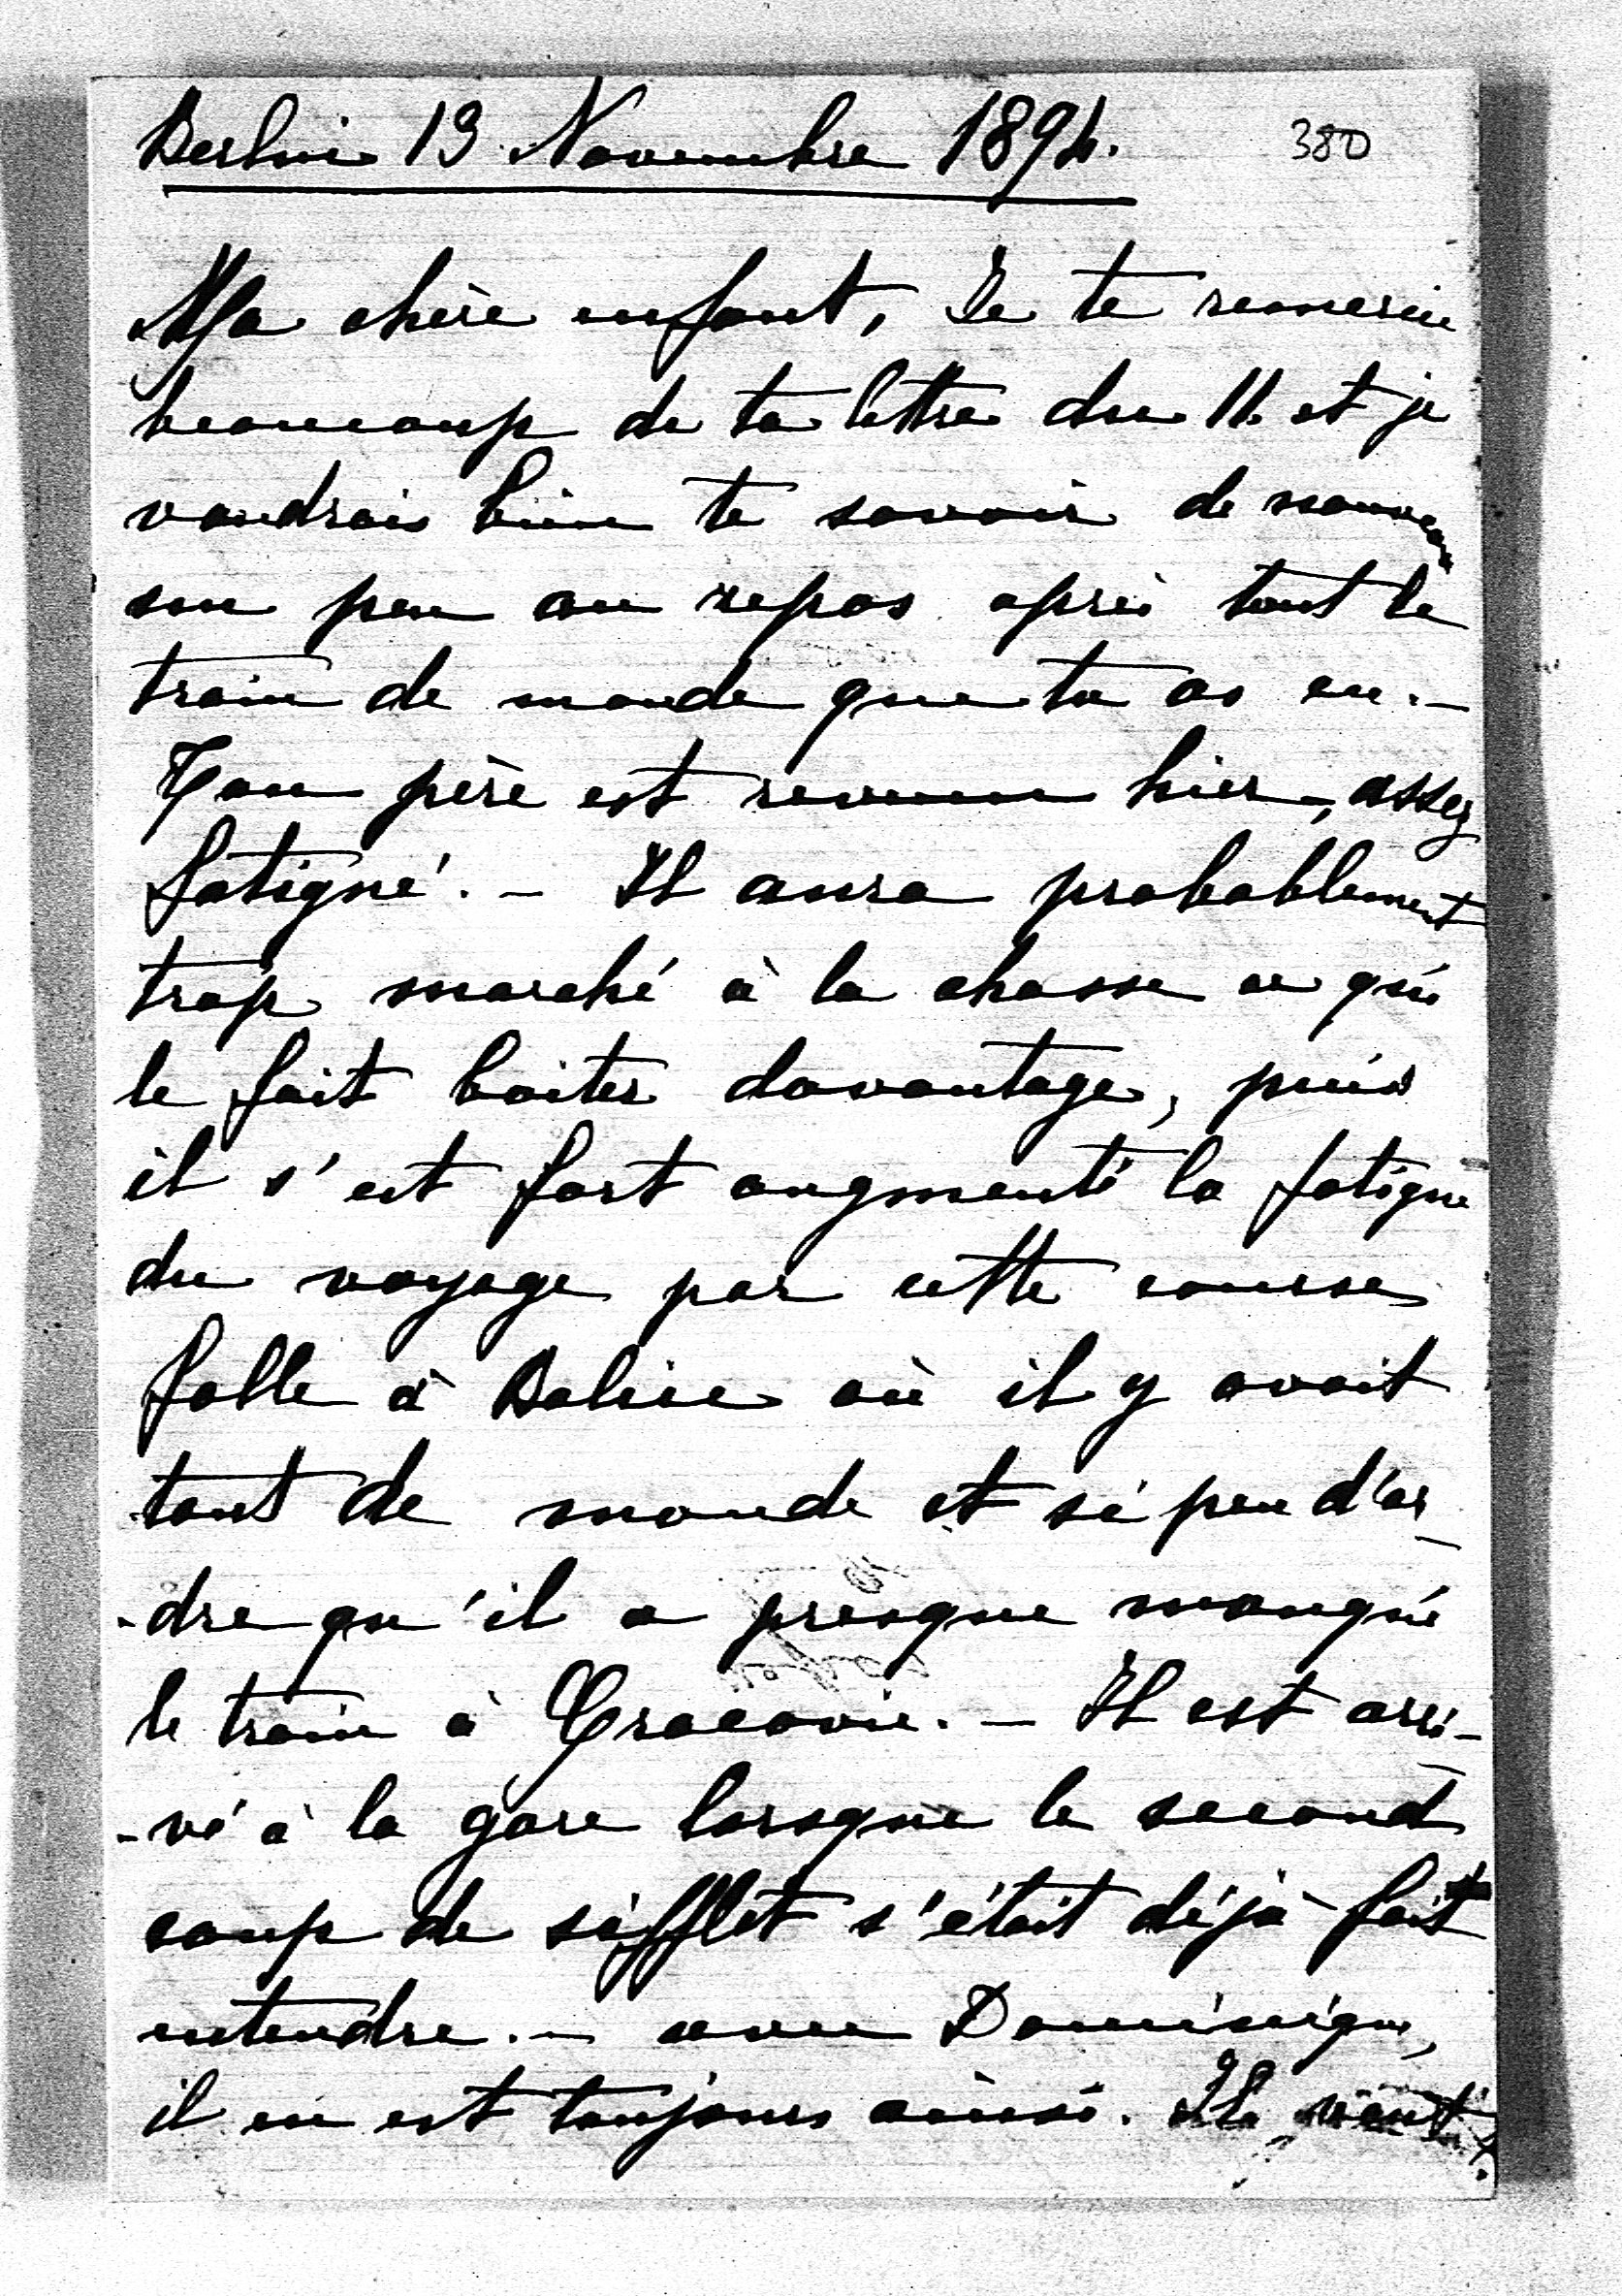 Berlin 13 Novembre 1894.
380
Ma chère enfant, Je te remercie
beaucoup de ta lettre du 11. et je
voudrais bien te savoir de nouveau
un peu au repos après tout le
train de monde que tu as eu. —
Ton père est revenu hier, assez
fatigué. — Il aura probablement
trop marché à la chasse ce qui
le fait boiter davantage, puis
il s'est fort augmenté la fatigue
du voyage par cette course
folle à Balice où il y avait
tant de monde et si peu d'or-
-dre qu'il a presque manqué
le train à Cracovie. — Il est arri-
-vé à la gare lorsque le second
coup de sifflet s'était déjà fait
entendre. — avec Dominique,
il en est toujours ainsi. Il vient